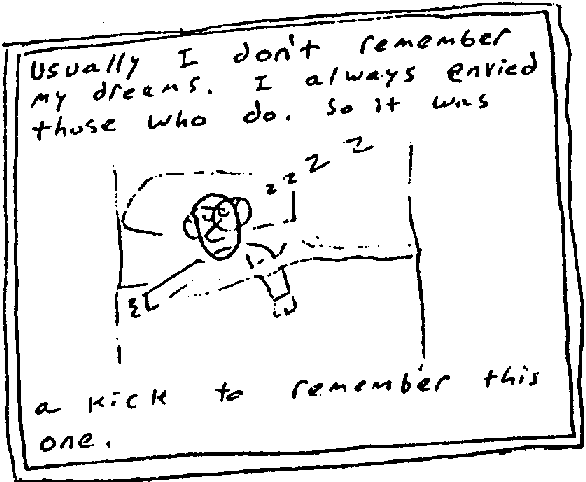 Usually I don't remember
my dreams. I always envied
those who do. So it was
z z z z
a kick to remember this
one.